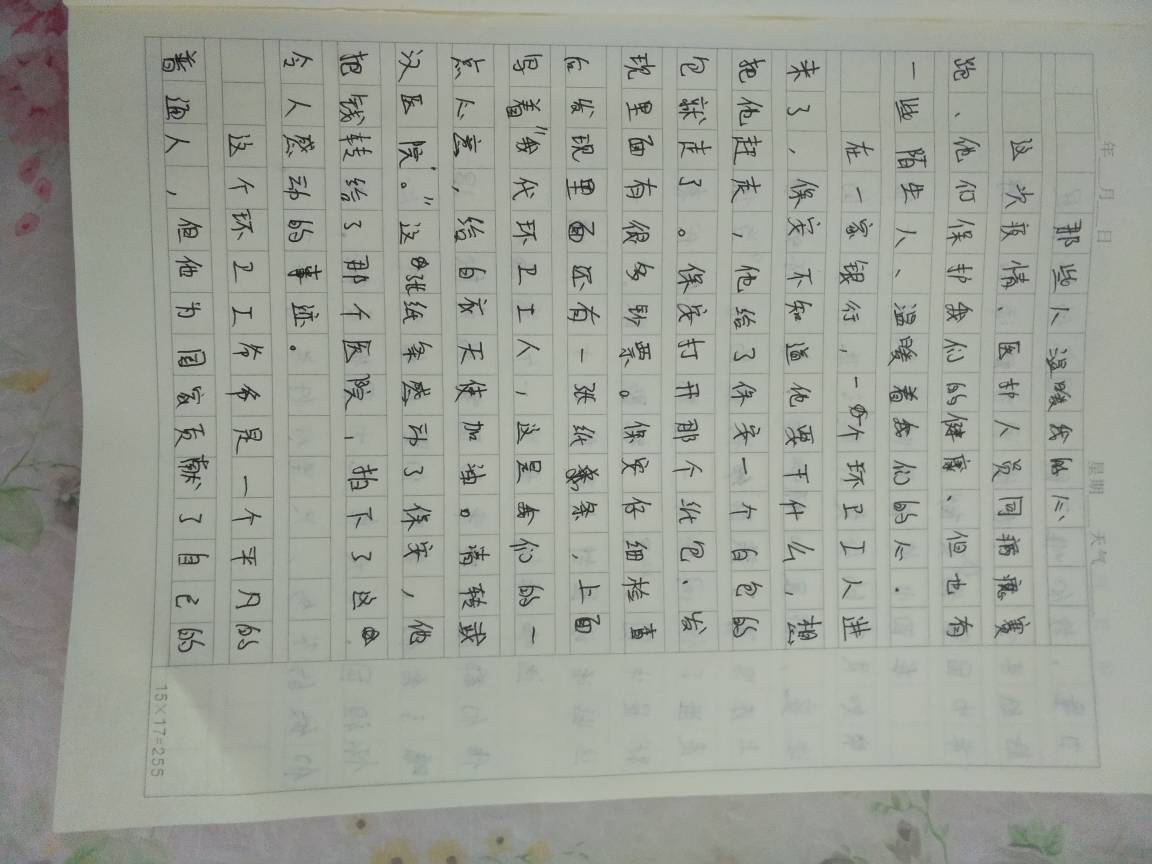 年 月 日 星期 天气
那些人温暖我的心
这次疫情、医护人员同病魔赛
跑、他们保护我们的健康、但也有
一些陌生人、温暖着我们的心.
在一家银行,一个环卫工人进
来了,保安不知道他要干什么,想
把他赶走,他给了保安一个白包的
包就走了。保安打开那个纸包、发
现里面有很多钞票。保安仔细检查
后发现里面还有一张纸条,上面
写着“我代环卫工人,这是我们的一
点心意,给白衣天使加油。请转武
汉医院。”这张纸条感动了保安,他
把钱转给了那个医院,拍下了这
令人感动的事迹。
这个环卫工爷爷是一个平凡的
普通人,但他为国家贡献了自己的
15×17=255